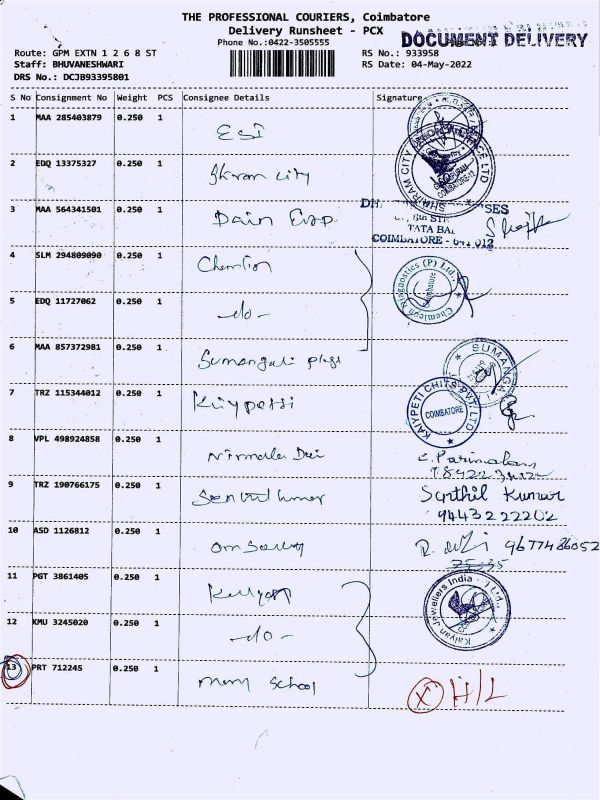 THE PROFESSIONAL COURIERS, Coimbatore
Delivery Runsheet - PCX
Phone No.:0422-3505555
DOCUMENT DELIVERY
Route: GPM EXTN 1 2 6 8 ST
RS No.: 933958
Staff: BHUVANESHWARI
RS Date: 04-May-2022
DRS No.: DCJB93395801
S No Consignment No Weight PCS Consignee Details Signature
1 MAA 285403879 0.250 1 ESI
2 EDQ 13375327 0.250 1 city
COIMBATORE-12
3 MAA 564341501 0.250 1
TATA BA
COIMBATORE - 641 012
4 SLM 294809090 0.250 1
(P) Ltd.,
Coimbatore
5 EDQ 11727062 0.250 1 -do-
6 MAA 857372981 0.250 1 Sumangali
SUMANGALI
7 TRZ 115344012 0.250 1
KAIYPETI CHITS PVT. LTD
COIMBATORE
8 VPL 498924858 0.250 1 Nirmala Devi
9 TRZ 190766175 0.250 1 Senthil Kumar Synthil Kumar
9443222202
10 ASD 1126812 0.250 1 R. 9677486052
11 PGT 3861405 0.250 1 Kallyan
Kalyan Jewellers India Ltd.,
12 KMU 3245020 0.250 1 -do-
13 PRT 712245 0.250 1 School X H/L